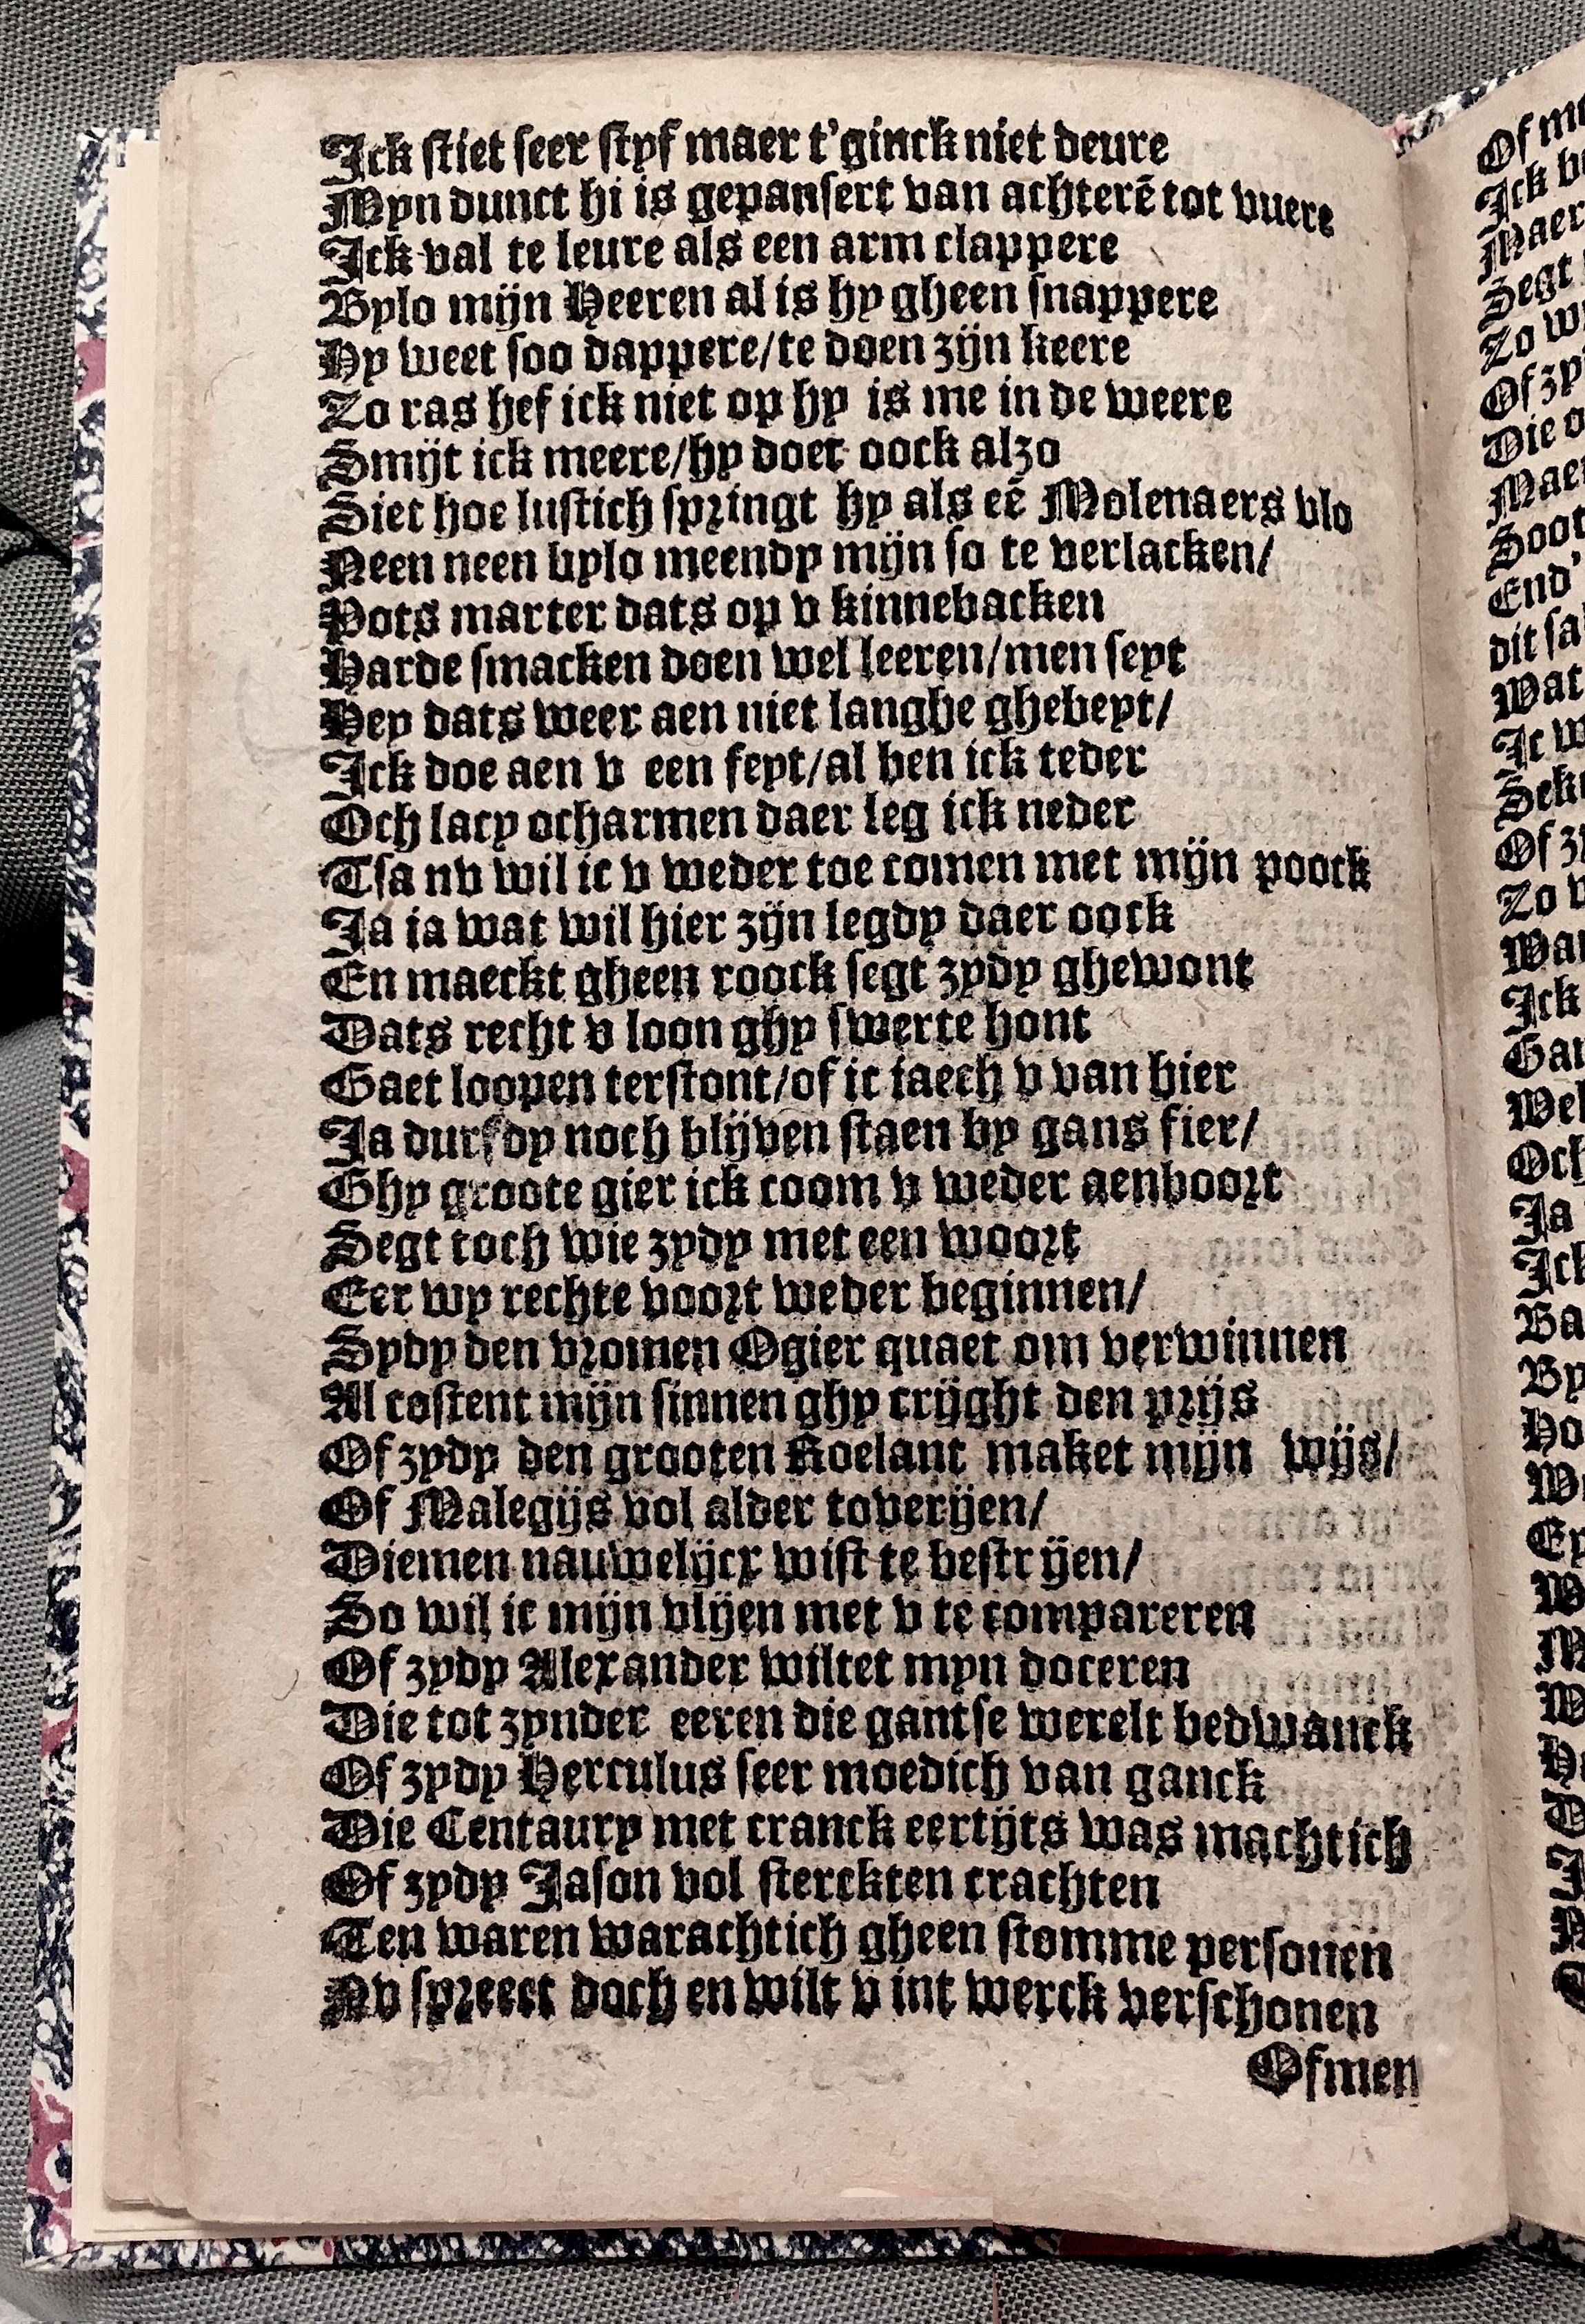 Ick stiet seer styf maer t'ginck niet deure
Myn dunct hi is gepansert van achterē tot vuere
Ick val te leure als een arm clappere
Bylo mijn Heeren al is hy gheen snappere
Hy weet soo dappere/te doen zijn keere
Zo ras hef ick niet op hy is me in de weere
Smijt ick meere/hy doet oock alzo
Siet hoe lustich springt hy als eē Molenaers vlo
Neen neen bylo meendy mijn so te verlacken/
Pots marter dats op v kinnebacken
Harde smacken doen wel leeren/men seyt
Hey dats weer aen niet langhe ghebeyt/
Ick doe aen v een feyt/al ben ick teder
Och lacy ocharmen daer leg ick neder
Tsa nv wil ic v weder toe comen met mijn poock
Ja ia wat wil hier zijn legdy daer oock
En maeckt gheen roock segt zydy ghewont
Dats recht v loon ghy swerte hont
Gaet loopen terstont/of ic iaech v van hier
Ja dursdy noch blijven staen by gans fier/
Ghy groote gier ick coom v weder aenboort
Segt toch wie zydy met een woort
Eer wy rechte voort weder beginnen/
Sydy den vromen Ogier quaet om verwinnen
Al costent mijn sinnen ghy crijght den prijs
Of zydy den grooten Roelant maket mijn wijs/
Of Malegijs vol alder toverijen/
Diemen nauwelijcx wist te bestrijen/
So wil ic mijn vlijen met v te compareren
Of zydy Alexander wiltet myn doceren
Die tot zynder eeren die gantse werelt bedwanck
Of zydy Herculus seer moedich van ganck
Die Centaury met cranck eertijts was machtich
Of zydy Jason vol sterckten crachten
Ten waren warachtich gheen stomme personen
Nv spreect doch en wilt v int werck verschonen
Ofmen
Of
Ick
Maer
Segt
Zo
Of
Die
Maer
End'
dit
Wat